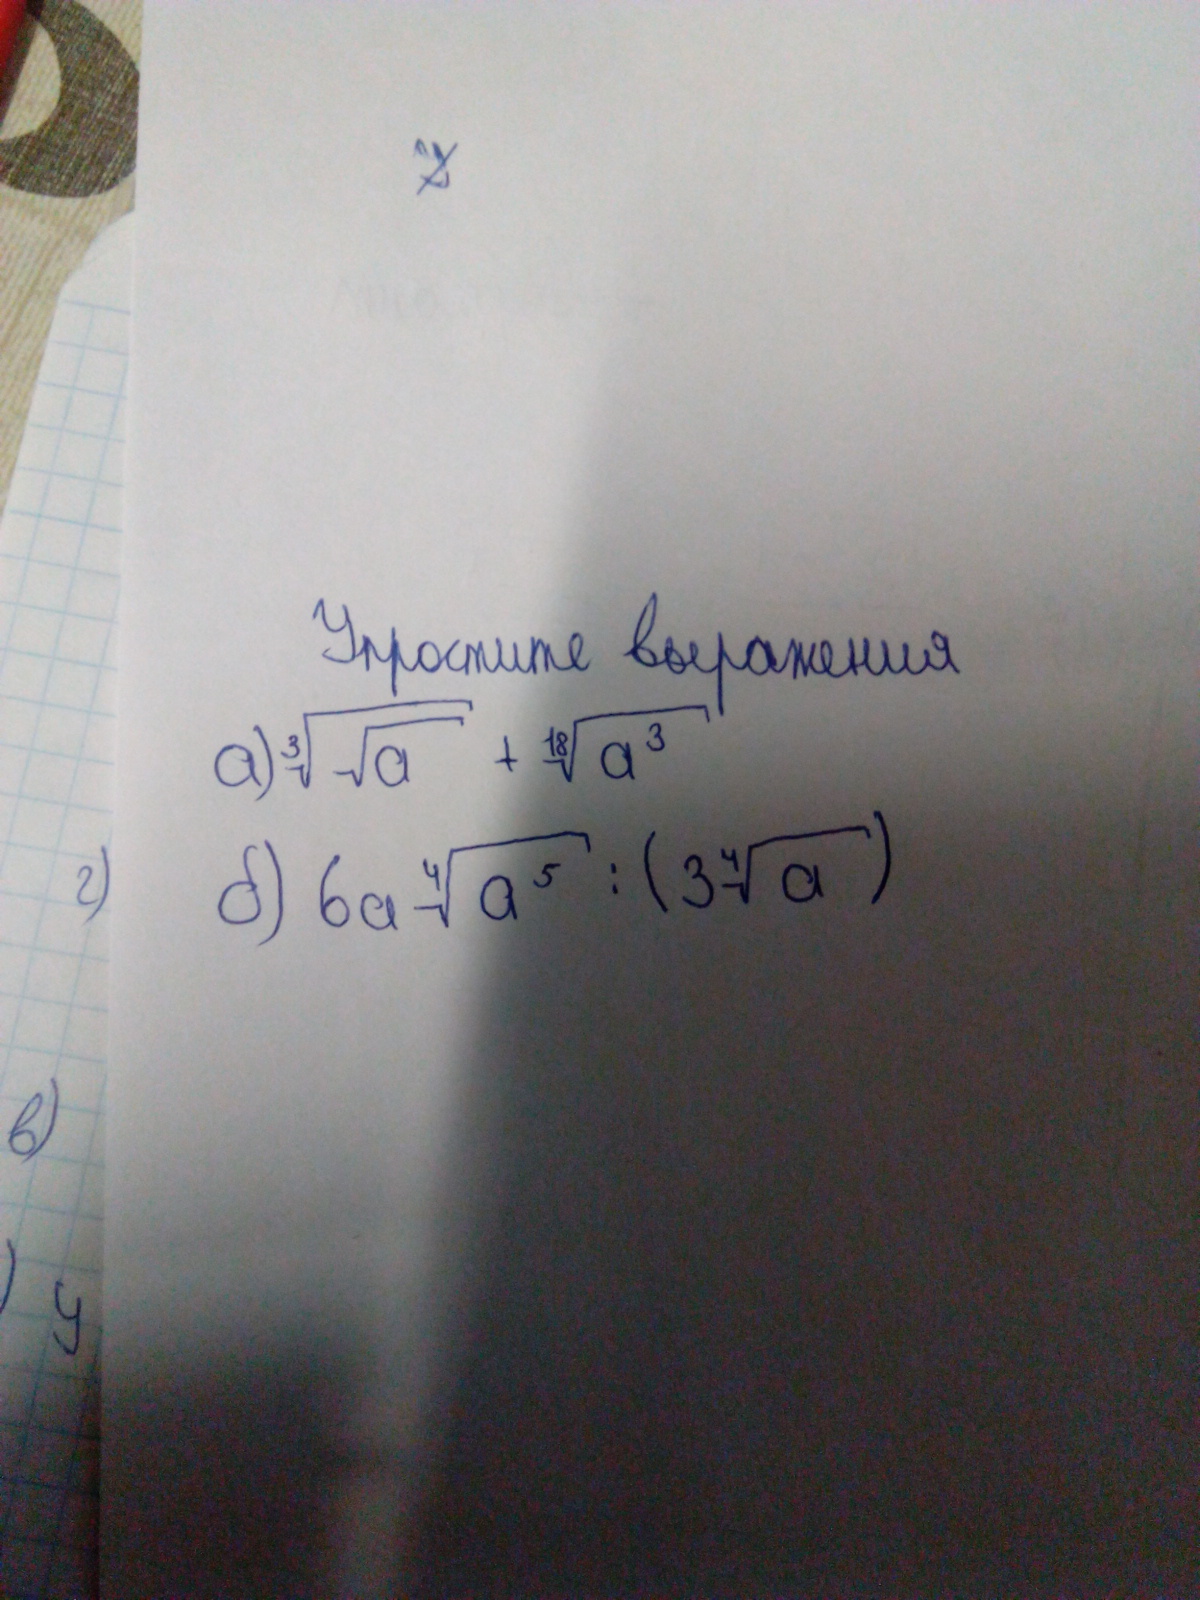 Упростите выражения
а) ³√√a + ¹⁸√a³
г)
б) 6a ⁴√a⁵ : (3 ⁴√a)
в)
) у